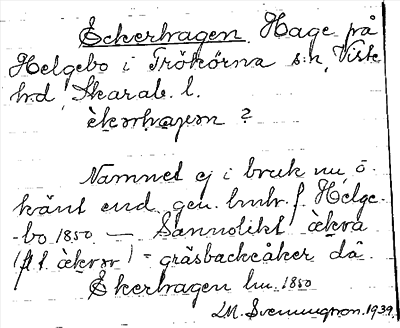 Eckerhagen. Hage på
Helgebo i Trökörna s:n, Viste
hd, Skarab. l.
èkərhaɡen ?
Namnet ej i bruk nu o.
känt end. gen. lmkr. f. Helge-
-bo 1850 — Sannolikt àkra
(pl. àkrər) = gräsbackeåker då.
Ekerhagen lm. 1850
LM. Svenungson. 1939.